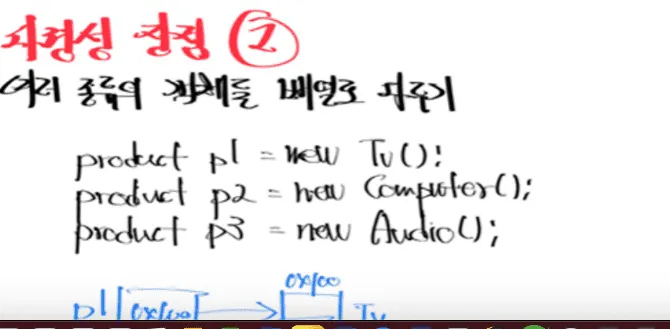 다형성 장점 ①
여러 종류의 객체를 배열로 다루기
product p1 = new Tv();
product p2 = new Computer();
product p3 = new Audio();
0x100
p1 0x100 Tv